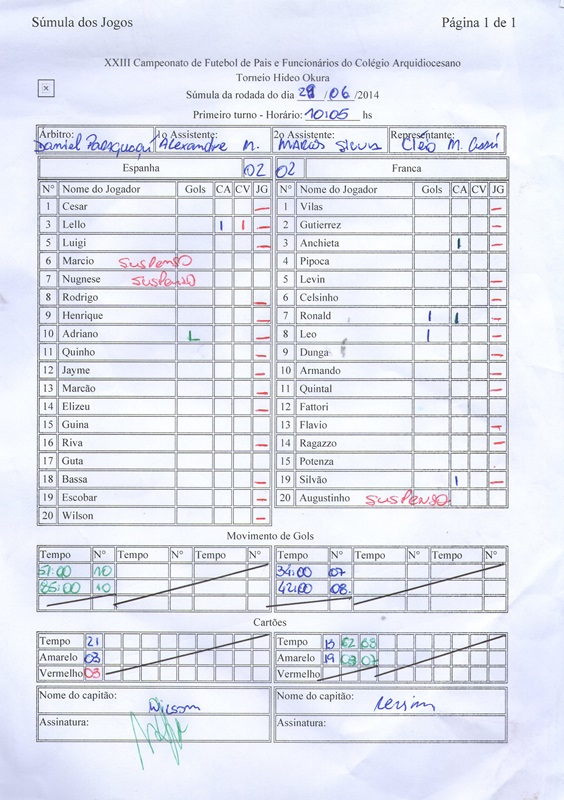 Súmula dos Jogos Página 1 de 1
XXIII Campeonato de Futebol de Pais e Funcionários do Colégio Arquidiocesano
Torneio Hideo Okura
Súmula da rodada do dia /06/2014
Primeiro turno - Horário: 10:05 hs
Árbitro: 1o Assistente: 2o Assistente: Representante:
Daniel Alexandre M. Marcus Cléo M.
Espanha 02 02 Franca
Nº Nome do Jogador Gols CA CV JG Nº Nome do Jogador Gols CA CV JG
1 Cesar — 1 Vilas —
3 Lello I I — 2 Gutierrez —
5 Luigi — 3 Anchieta I —
6 Marcio suspenso 4 Pipoca
7 Nugnese suspenso 5 Levin —
8 Rodrigo — 6 Celsinho —
9 Henrique — 7 Ronald I I —
10 Adriano L — 8 Leo I —
11 Quinho — 9 Dunga —
12 Jayme — 10 Armando —
13 Marcão — 11 Quintal —
14 Elizeu — 12 Fattori
15 Guina 13 Flavio —
16 Riva — 14 Ragazzo —
17 Guta 15 Potenza
18 Bassa — 19 Silvão I —
19 Escobar — 20 Augustinho suspenso
20 Wilson —
Movimento de Gols
Tempo Nº Tempo Nº Tempo Nº Tempo Nº Tempo Nº Tempo Nº
57:00 10 34:00 07
85:00 10 42:00 08
Cartões
Tempo 21 Tempo 62 88
Amarelo 03 Amarelo 19 03 07
Vermelho 03 Vermelho
Nome do capitão: Wilson Nome do capitão:
Assinatura: Assinatura: